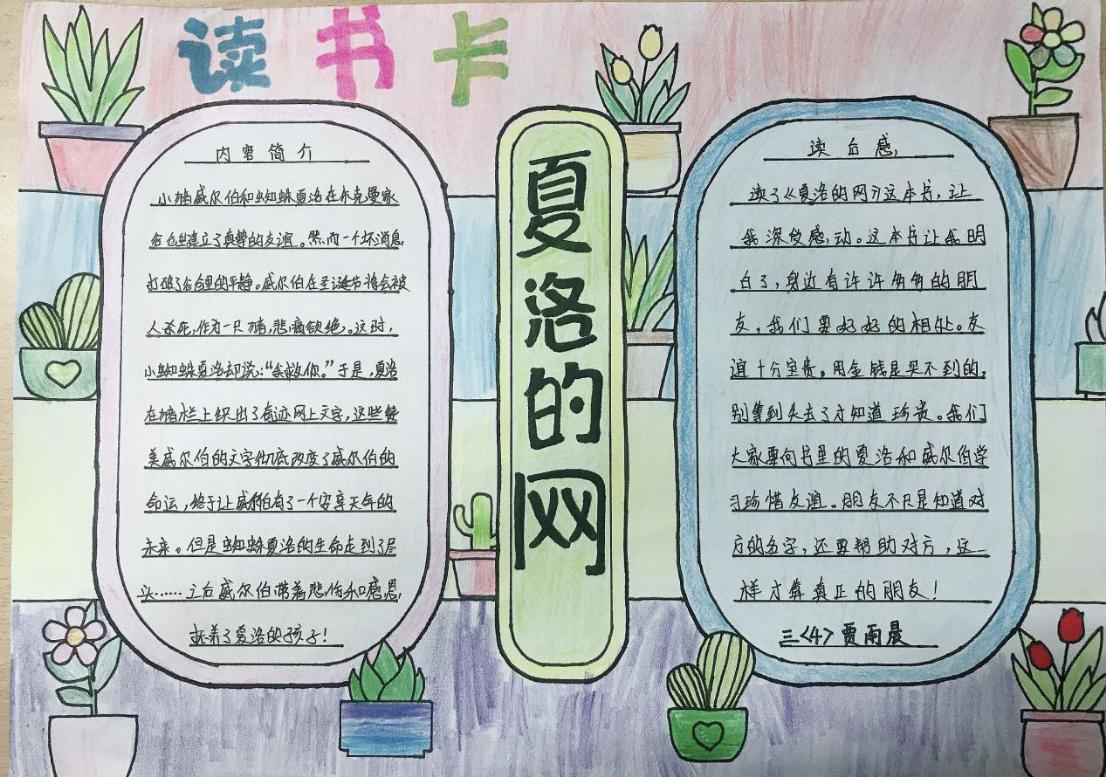 读书卡
内容简介
小猪威尔伯和蜘蛛夏洛在朱克曼家
谷仓里建立了真挚的友谊。然而一个坏消息
打破了谷仓里的平静。威尔伯在圣诞节将会被
人杀死,作为一只猪,悲痛欲绝。这时,
小蜘蛛夏洛却说:“我救你。”于是,夏洛
在猪栏上织出了奇迹网上文字,这些赞
美威尔伯的文字彻底改变了威尔伯的
命运,终于让威尔伯有了一个安享天年的
未来。但是蜘蛛夏洛的生命走到了尽
头……之后威尔伯带着悲伤和感恩,
抚养了夏洛的孩子!
夏洛的网
读后感
读了《夏洛的网》这本书,让
我深受感动。这本书让我明
白了,身边有许许多多的朋
友。我们要好好的相处。友
谊十分宝贵。用金钱是买不到的,
别等到失去了才知道珍贵。我们
大家要向书里的夏洛和威尔伯学
习珍惜友谊。朋友不只是知道对
方的名字,还要帮助对方,这
样才算真正的朋友!
三<4>贾雨晨